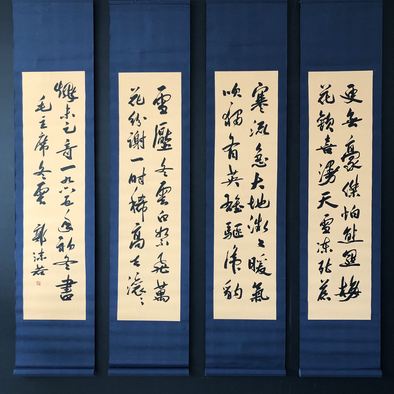 雪壓冬雲白絮飛萬
花紛謝一時稀高天滾々
寒流急大地微々暖氣
吹獨有英雄驅虎豹
更無豪傑怕熊羆梅
花歡喜漫天雪凍死蒼
蠅未足奇一九六五年初冬書
毛主席冬雲 郭沫若